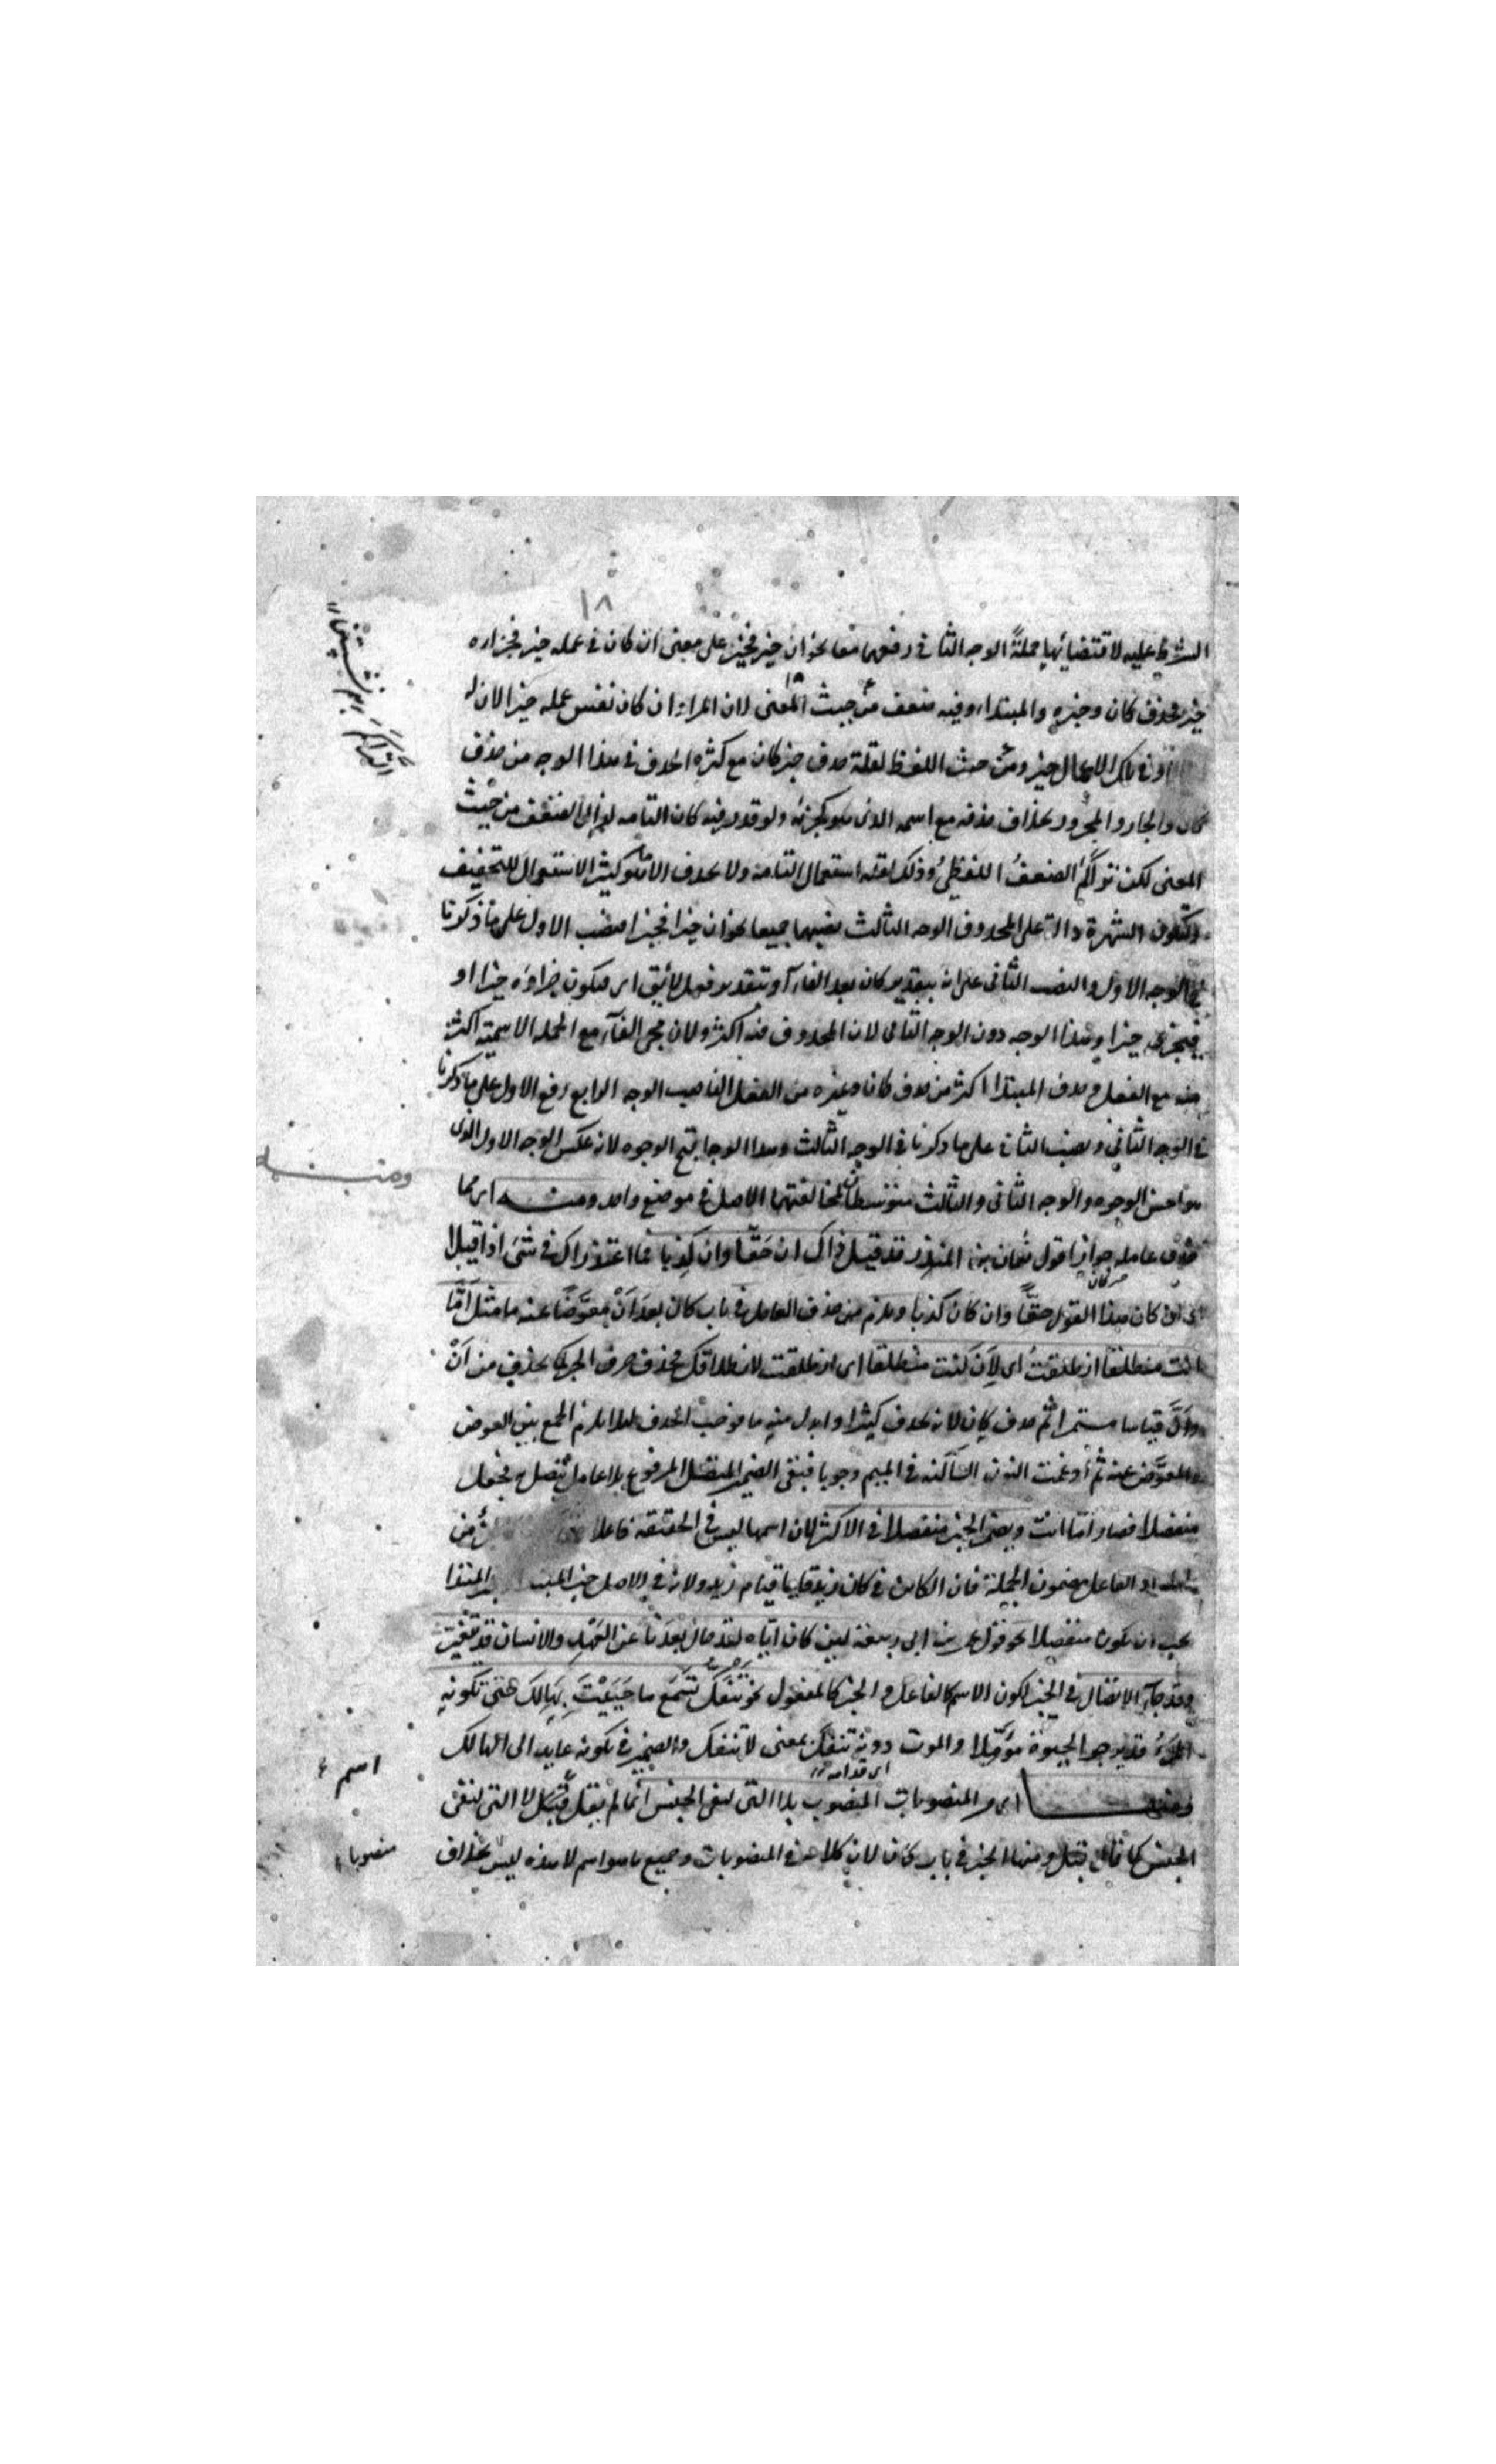 ١٨
الشرط عليه لاقتضائها جملةً الوجه الثاني رفعهما معا نحو ان خير فخير على معنى ان كان في عمله خير فجزاءه
خير بحذف كان وخبره والمبتدا، وفيه ضعف من حيث المعنى لان المراد ان كان نفس عمله خيرا لان له
او في تلك الاعمال خير ومن حيث اللفظ لقلة حذف خبر كان مع كثرة الحذف في هذا الوجه من حذف
كان والجار والمجرور بخلاف حذفه مع اسمه الذى هو كجزئه ولو قدر فيه كان التامه لم الضعف من حيث
المعنى لكن الضعفُ اللفظيُ وذلك لقلة استعمال التامه ولا يحذف الا ما هو كثير الاستعمال للتخفيف
ولتكون الشهرة دالة على المحذوف الوجه الثالث نصبهما جميعا نحو ان خيرا فخيرا فنصب الاول على ما ذكرنا
في الوجه الاول والنصب الثاني على انه بتقدير كان بعد الفاء او بتقدير فعل لائق اى فيكون جزاؤه خيرا او
فيجزى خيرا وهذا الوجه دون الوجه الثاني لان المحذوف فيه اكثر ولان مجئ الفاء مع الجمله الاسمية اكثر
منه مع الفعل وحذف المبتدا اكثر من حذف كان وغيره من الفعل الناصب الوجه الرابع رفع الاول على ما ذكرنا
في الوجه الثاني ونصب الثاني على ما ذكرنا في الوجه الثالث وهذا الوجه اقبح الوجوه لانه عكس الوجه الاول الذى
هو احسن الوجوه والوجه الثاني والثالث متوسطان لمخالفتهما الاصل في موضع واحد ومنه اى مما
حذف عامله جوازا قول نعمان بن المنذر قد قيل ذاك ان حَقّا وان كذبا فما اعتذارك في شئ اذا قيلا
اى ان كان هذا القول حقّا وان كان كذبا ويلزم حذف العامل في باب كان بعد اَنْ معوَّضًا عنه ما مثل اَمّا
انت منطلقا انطلقتُ اى لِاَن كنت منطلقا اى انطلقت لانطلاقك فحذف حرف الجر كما يحذف من اَنْ
واَنَّ قياسا مستمرا ثم حذف كان لانه يحذف كثيرا وابدل منه ما فوجب الحذف لئلا يلزم الجمع بين العوض
والمعوَّض عنه ثم ادغمت النون الساكنه في الميم وجوبا فبقى الضمير المتصل المرفوع بلا عامل يتصل به فجعل
منفصلا فصار امّا انت ويجئ الخبر منفصلا في الاكثر لان اسمها ليس في الحقيقه فاعلا
الفاعل مضمون الجملة فان الكائن في كان زيد قايما قيام زيد ولانه في الاصل خبر المبتدا وخبر المبتدا
يجب ان يكون منفصلا نحو قول عمر بن ابى ربيعة لئن كان اياه لقد حال بعدنا عن العهد والانسان قد يتغيّر
وقد جاء الاتصال في الخبر لكون الاسم كالفاعل والخبر كالمفعول نحو تنفكّ تسمَع ما حَييتَ بهالك حتى تكونه
المرءُ قد يرجو الحيوة مؤمّلا والموت دونه تنفكّ بمعنى لا تنفك والضمير في تكونه عايد الى الهالك
ومنها اى من المنصوبات المنصوب بلا التى لنفى الجنس انما لم يقل لا التى لنفى
الجنس كما قال قبل ومنها الخبر في باب كان لان كلا من المنصوبات وجميع ما هو اسم لا هذه ليس بخلاف
ومنه
اسم
منصوبا
اى قدامه